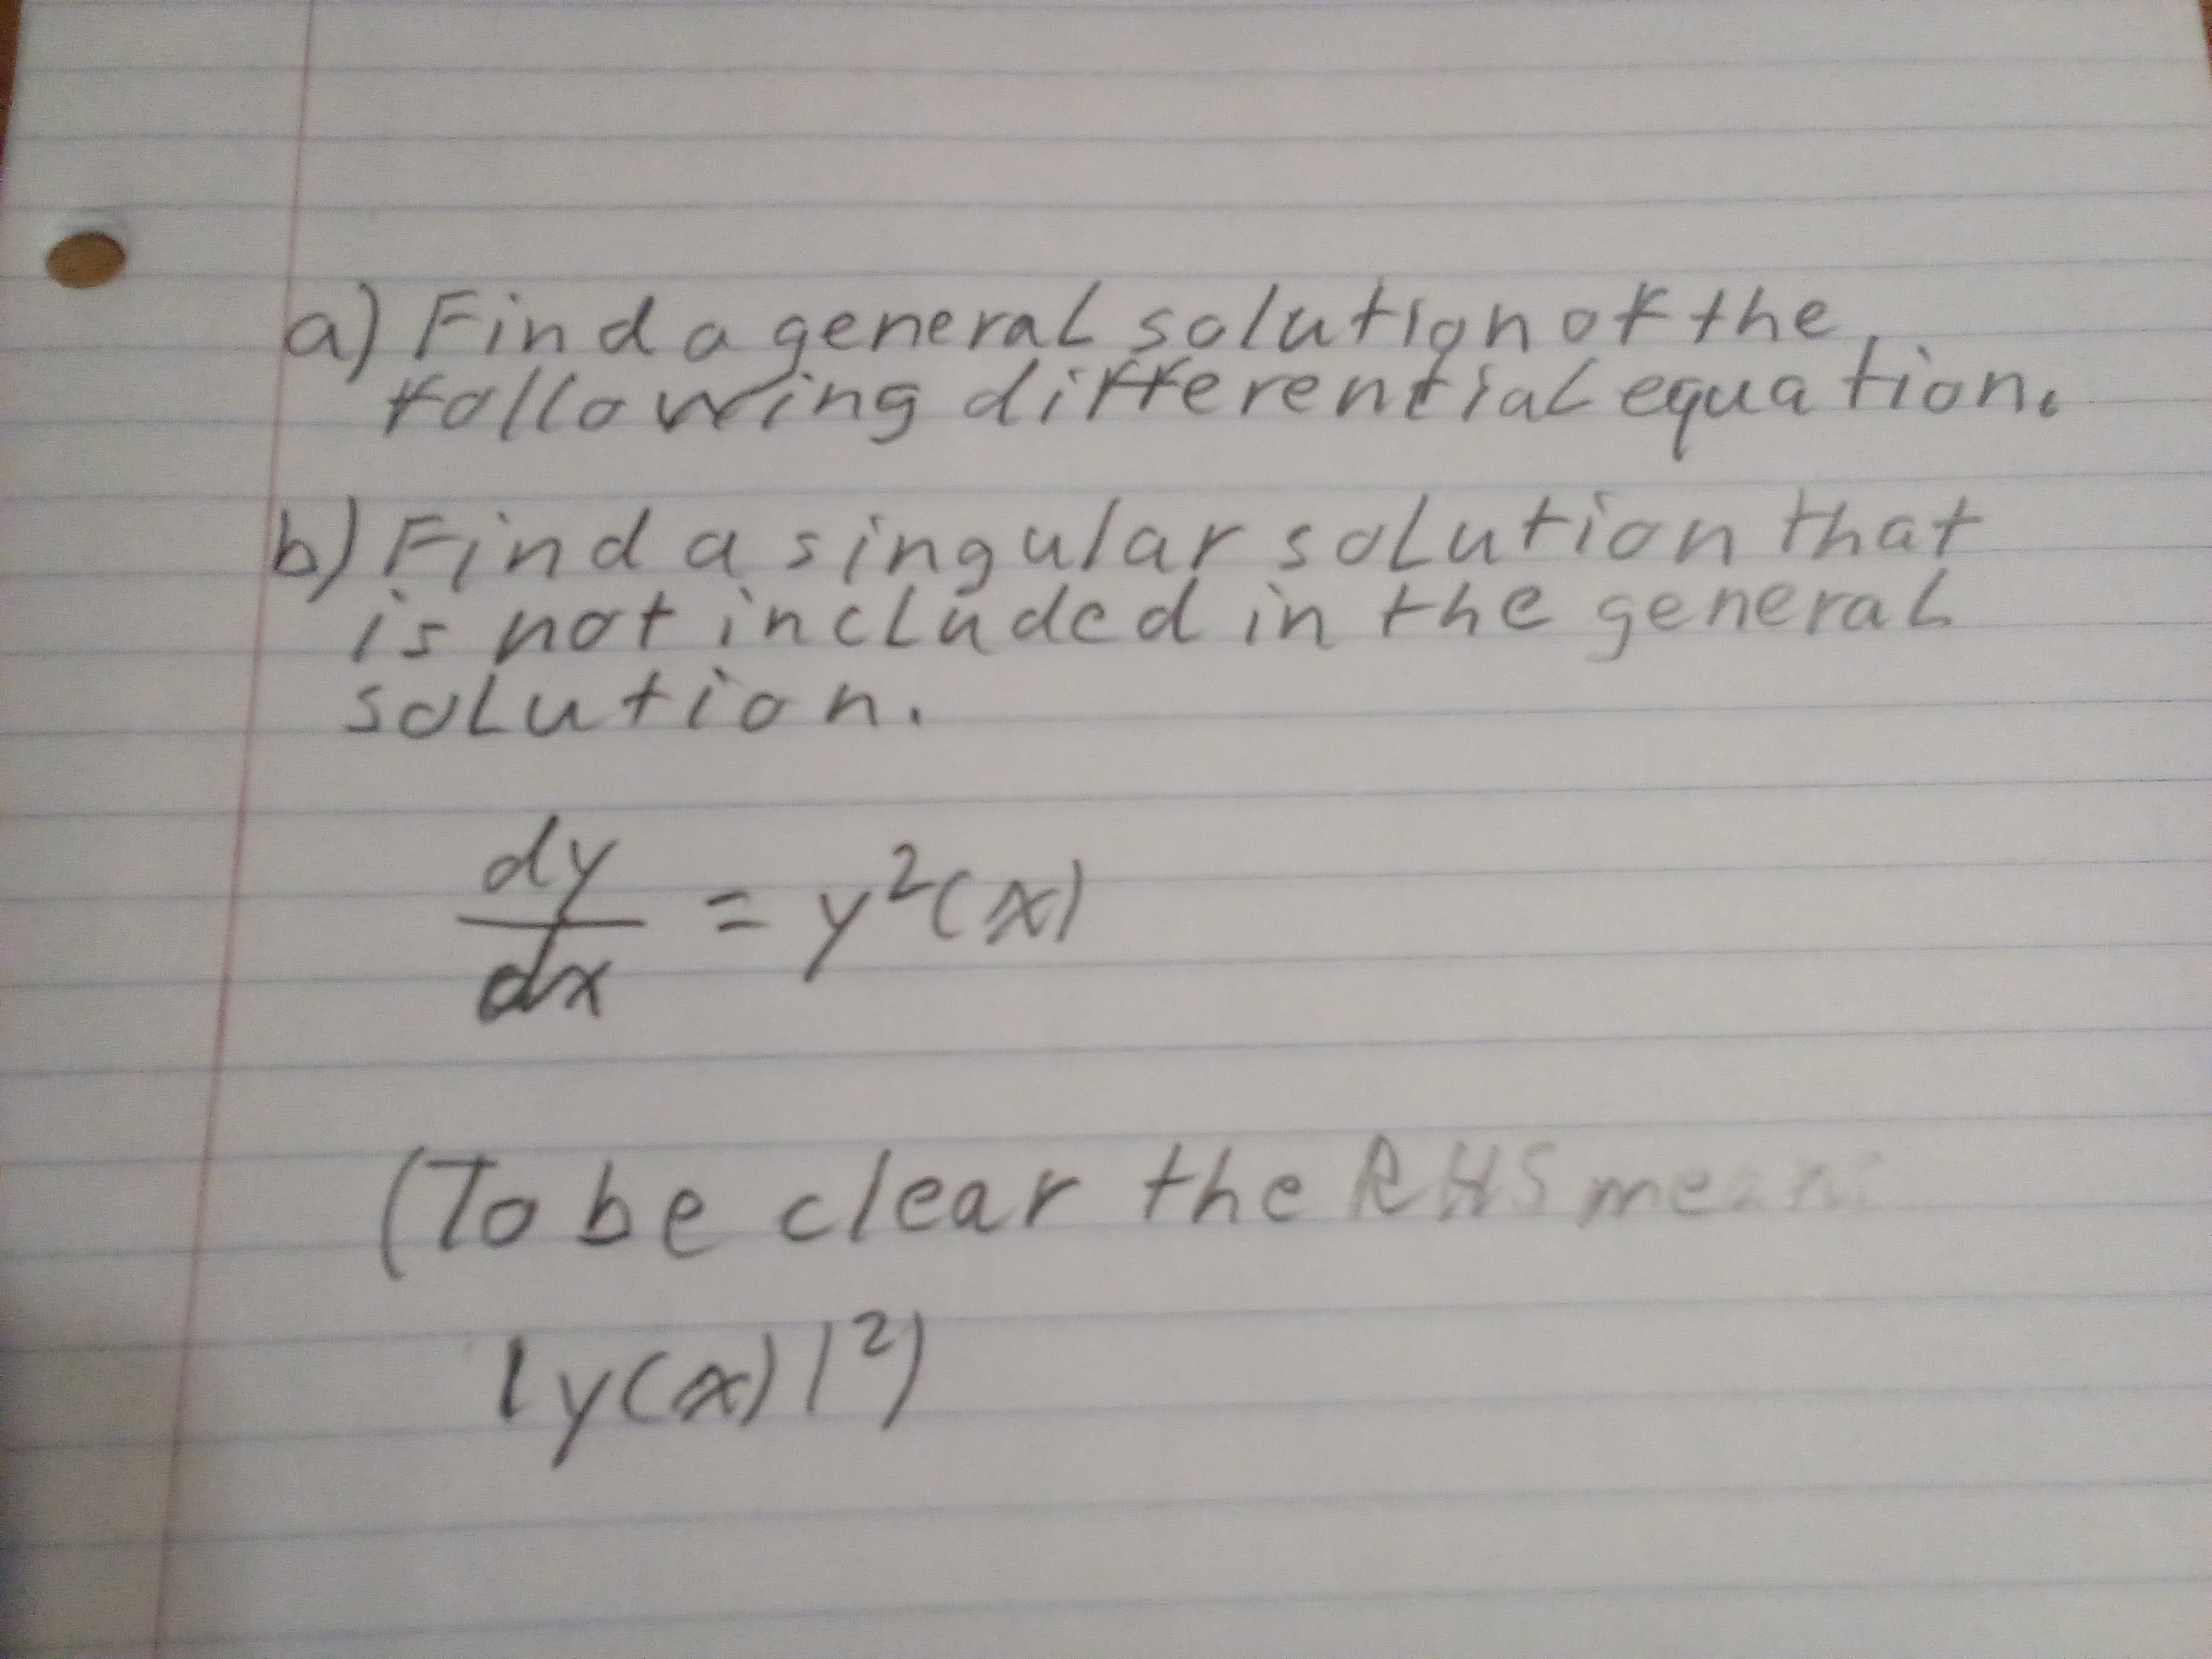 a) Find a general solution of the
following differential equation.
b) Find a singular solution that
is not included in the general
solution.
dy/dx = y²(x)
(To be clear the RHS means
|y(x)|²)